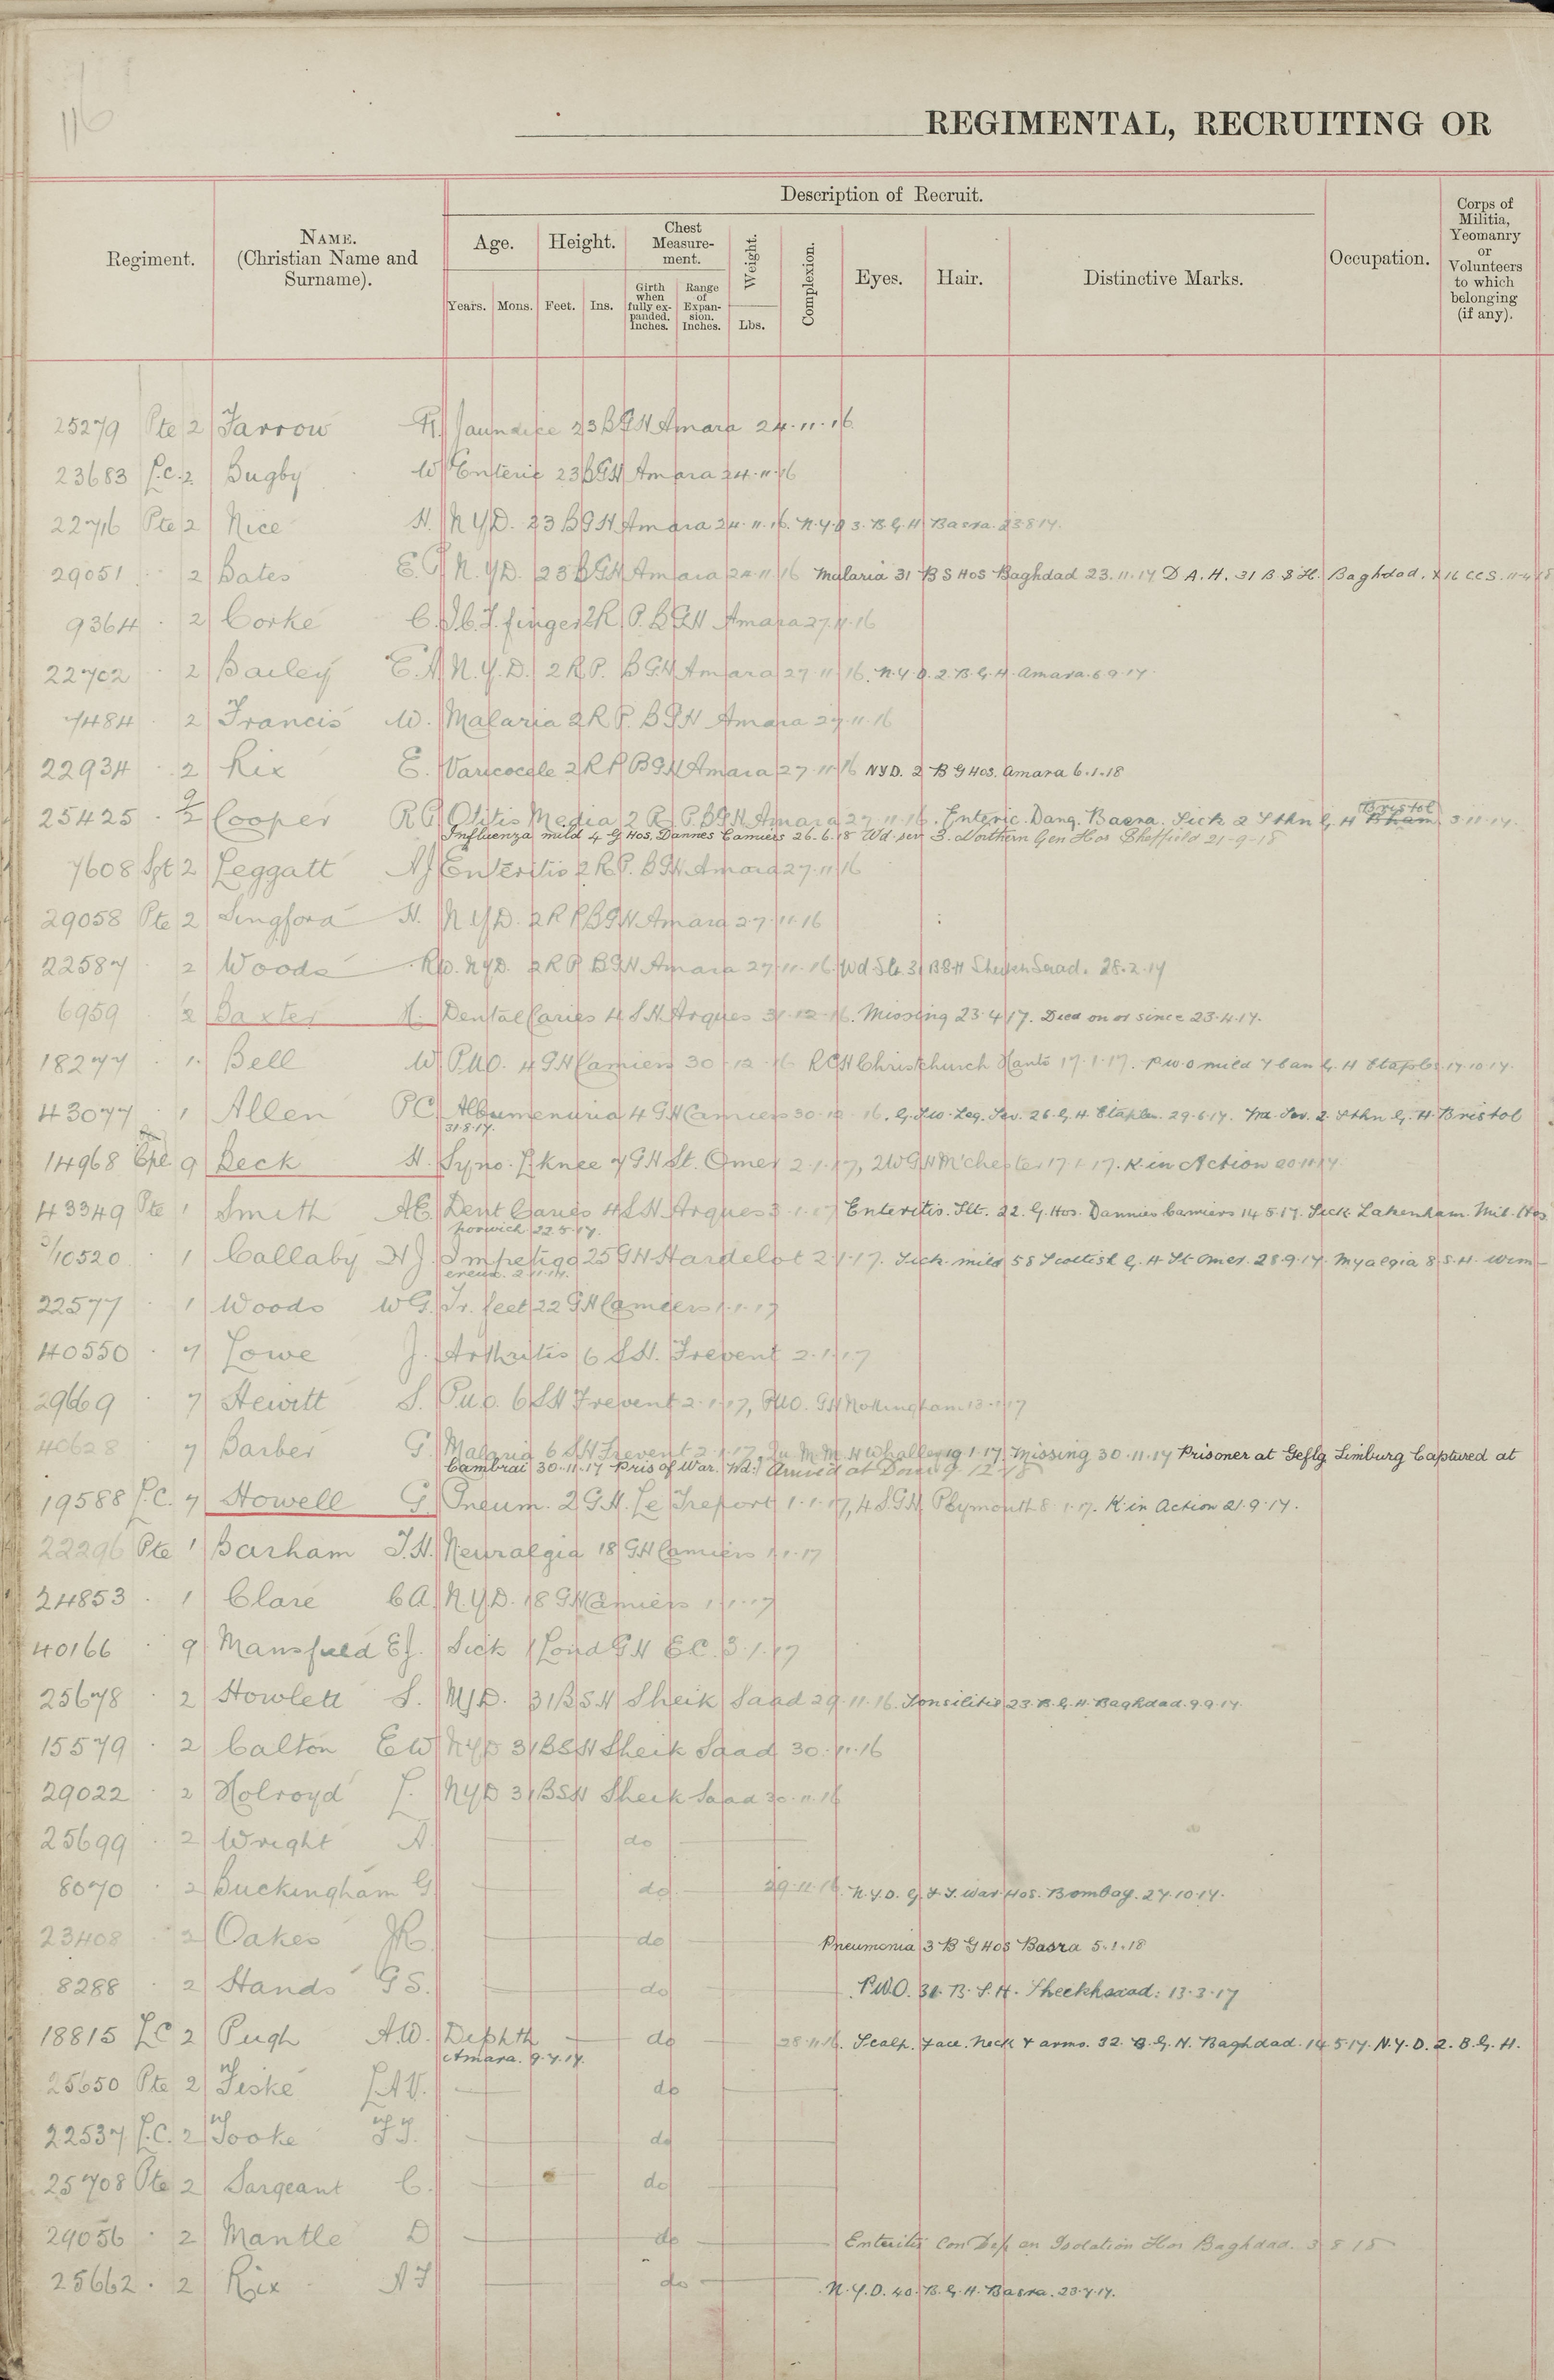 116
REGIMENTAL, RECRUITING OR
Regiment.
NAME.
(Christian Name and
Surname).
Description of Recruit.
Age.
Years. Mons.
Height.
Feet. Ins.
Chest
Measure-
ment.
Girth
when
fully ex-
panded.
Inches.
Range
of
Expan-
sion.
Inches.
Weight.
Lbs.
Complexion.
Eyes.
Hair.
Distinctive Marks.
Occupation.
Corps of
Militia,
Yeomanry
or
Volunteers
to which
belonging
(if any).
25279 Pte 2 Farrow Jaundice 23 BGH Amara 24.11.16
23683 L.C. 2 Bugby W Enteric 23 BGH Amara 24.11.16
22716 Pte 2 Nice H. NYD. 23 BGH Amara 24.11.16. N.Y.D 3. B.G.H Basra. 23.8.17.
29051 2 Bates E.G N.YD. 23 BGH Amara 24.11.16 Malaria 31 B S Hos Baghdad 23.11.17 D.A.H. 31 B.S.H. Baghdad. X 16 CCS. 11.4.18
9364 2 Corke C. I.C.T. finger 2 R.P. BGH Amara 27.11.16
22702 2 Bailey E.A N.Y.D. 2 R.P. BGH Amara 27.11.16. N.Y.D. 2. B.G.H. Amara. 6.9.17.
7484 2 Francis W. Malaria 2 R P. BGH Amara 27.11.16
22934 2 Rix E. Varicocele 2 R P BGH Amara 27.11.16 NYD. 2 B G Hos. Amara 6.1.18
25425 9/2 Cooper R G Otitis Media 2 R. P. BGH Amara 27.11.16. Enteric. Dang. Basra. Sick 2 Sthn G. H Bham Bristol 3.11.17.
Influenza mild 4 G Hos. Dannes Camiers 26.6.18 Wd. sev 3. Northern Gen Hos Sheffield 21-9-18
7608 Sgt 2 Leggatt AJ Enteritis 2 R.P. BGH Amara 27.11.16
29058 Pte 2 Lingford H. NYD. 2 R P BGH Amara 27.11.16
22587 2 Woods RW. NYD. 2 R P BGH Amara 27.11.16. Wd Slt. 31 BSH Sheikh Saad. 28.2.17
6959 2 Baxter H. Dental Caries 4 SH Arques 31.12.16. Missing 23.4.17. Died on or since 23.4.17.
18277 1 Bell W. P.U.O. 4 GH Camiers 30.12.16 RCH Christchurch Hants 17.1.17. P.U.O mild 7 Can G. H Etaples 17.10.17.
43077 1 Allen PC. Albumenuria 4 GH Camiers 30.12.16. G.S.W. Leg. Sev. 26. G. H Etaples. 29.6.17. Sev. 2. Sthn G. H. Bristol
31.8.17.
14968 Cpl 9 Beck H. Syno. L knee 7 GH St. Omer 2.1.17, 2WGH M'chester 17.1.17. K in Action 20.11.17
43349 Pte 1 Smith AE. Dent Caries 4 SH Arques 3.1.17 Enteritis. Slt. 22. G. Hos. Dannies Camiers 14.5.17. Sick. Lakenham. Mil. Hos
Norwich 22.5.17.
3/10520 1 Callaby HJ. Impetigo 25 GH Hardelot 2.1.17. Sick. mild 58 Scottish G. H St Omer. 28.9.17. Myalgia 8. S.H. Wim-
ereux. 2.11.17.
22577 1 Woods WG. Tr. feet 22 GH Camiers 1.1.17
40550 7 Lowe J. Arthritis 6 SH. Frevent 2.1.17
29669 7 Hewitt S. P.u.o. 6 SH Frevent 2.1.17, PUO. GH Nottingham 13.1.17
40628 7 Barber G. Malaria 6 SH Frevent 2.1.17, Qu M.M.H Whalley 19.1.17. Missing 30.11.17 Prisoner at Geflg Limburg Captured at
Cambrai 30.11.17 Pris of War. Wd. Arrived at Dover 9.12.18
19588 L.C. 7 Howell G. Pneum. 2 G.H. Le Treport 1.1.17, 4 SGH Plymouth 8.1.17. K in Action 21.9.17.
22296 Pte 1 Barham T.H. Neuralgia 18 GH Camiers 1.1.17
24853 1 Clare CA. N.Y.D. 18 GH Camiers 1.1.17
40166 9 Mansfield EJ. Sick 1 Lond GH E.C. 3.1.17
25678 2 Howlett S. NYD. 31 BSH Sheik Saad 29.11.16. Tonsilitis 23. B.G.H. Baghdad. 9.9.17.
15579 2 Calton EW NYD 31 BSH Sheik Saad 30.11.16
29022 2 Holroyd L. NYD 31 BSH Sheik Saad 30.11.16
25699 2 Wright A. do
8070 2 Buckingham G. do 29.11.16. N.Y.D. G.F.T. War Hos. Bombay. 27.10.17.
23408 2 Oakes do Pneumonia 3 B G Hos Basra 5.1.18
8288 2 Hands GS. do PUO. 31. B. S. H. Sheekhsaad: 13.3.17
18815 LC 2 Pugh AW. Diphth do 28.11.16. Scalp. Face. Neck & arms. 32. B.G.H. Baghdad. 14.5.17. N.Y.D. 2. B.G.H.
Amara. 9.7.17.
25650 Pte 2 Fiske do
22537 L.C. 2 Tooke do
25708 Pte 2 Sargeant C. do
29056 2 Mantle D do Enteritis Con Dep an Isolation Hos Baghdad. 3.8.18
25662 2 Rix do N.Y.D. 40. B.G.H. Basra. 23.7.17.